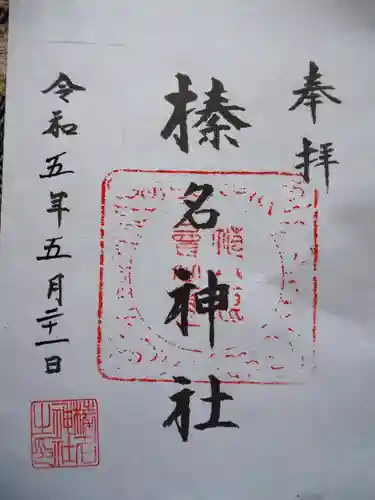 奉拝
榛名神社
令和五年五月二十一日